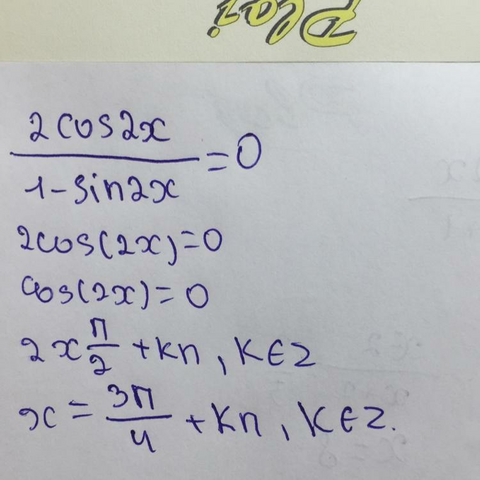 Plai
2cos2x
1-sin2x
=0
2cos(2x)=0
cos(2x)=0
2x π/2 +kπ, k∈z
x = 3π/4 +kπ, k∈z.